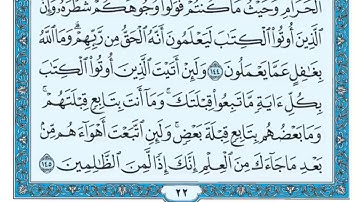 ٱلْحَرَامِ وَحَيْثُ مَا كُنتُمْ فَوَلُّوا۟ وُجُوهَكُمْ شَطْرَهُۥ وَإِنَّ
ٱلَّذِينَ أُوتُوا۟ ٱلْكِتَٰبَ لَيَعْلَمُونَ أَنَّهُ ٱلْحَقُّ مِن رَّبِّهِمْ وَمَا ٱللَّهُ
بِغَٰفِلٍ عَمَّا يَعْمَلُونَ ١٤٤ وَلَئِنْ أَتَيْتَ ٱلَّذِينَ أُوتُوا۟ ٱلْكِتَٰبَ
بِكُلِّ ءَايَةٍ مَّا تَبِعُوا۟ قِبْلَتَكَ وَمَا أَنتَ بِتَابِعٍ قِبْلَتَهُمْ
وَمَا بَعْضُهُم بِتَابِعٍ قِبْلَةَ بَعْضٍ وَلَئِنِ ٱتَّبَعْتَ أَهْوَاءَهُم مِّنۢ
بَعْدِ مَا جَاءَكَ مِنَ ٱلْعِلْمِ إِنَّكَ إِذًا لَّمِنَ ٱلظَّٰلِمِينَ ١٤٥
٢٢